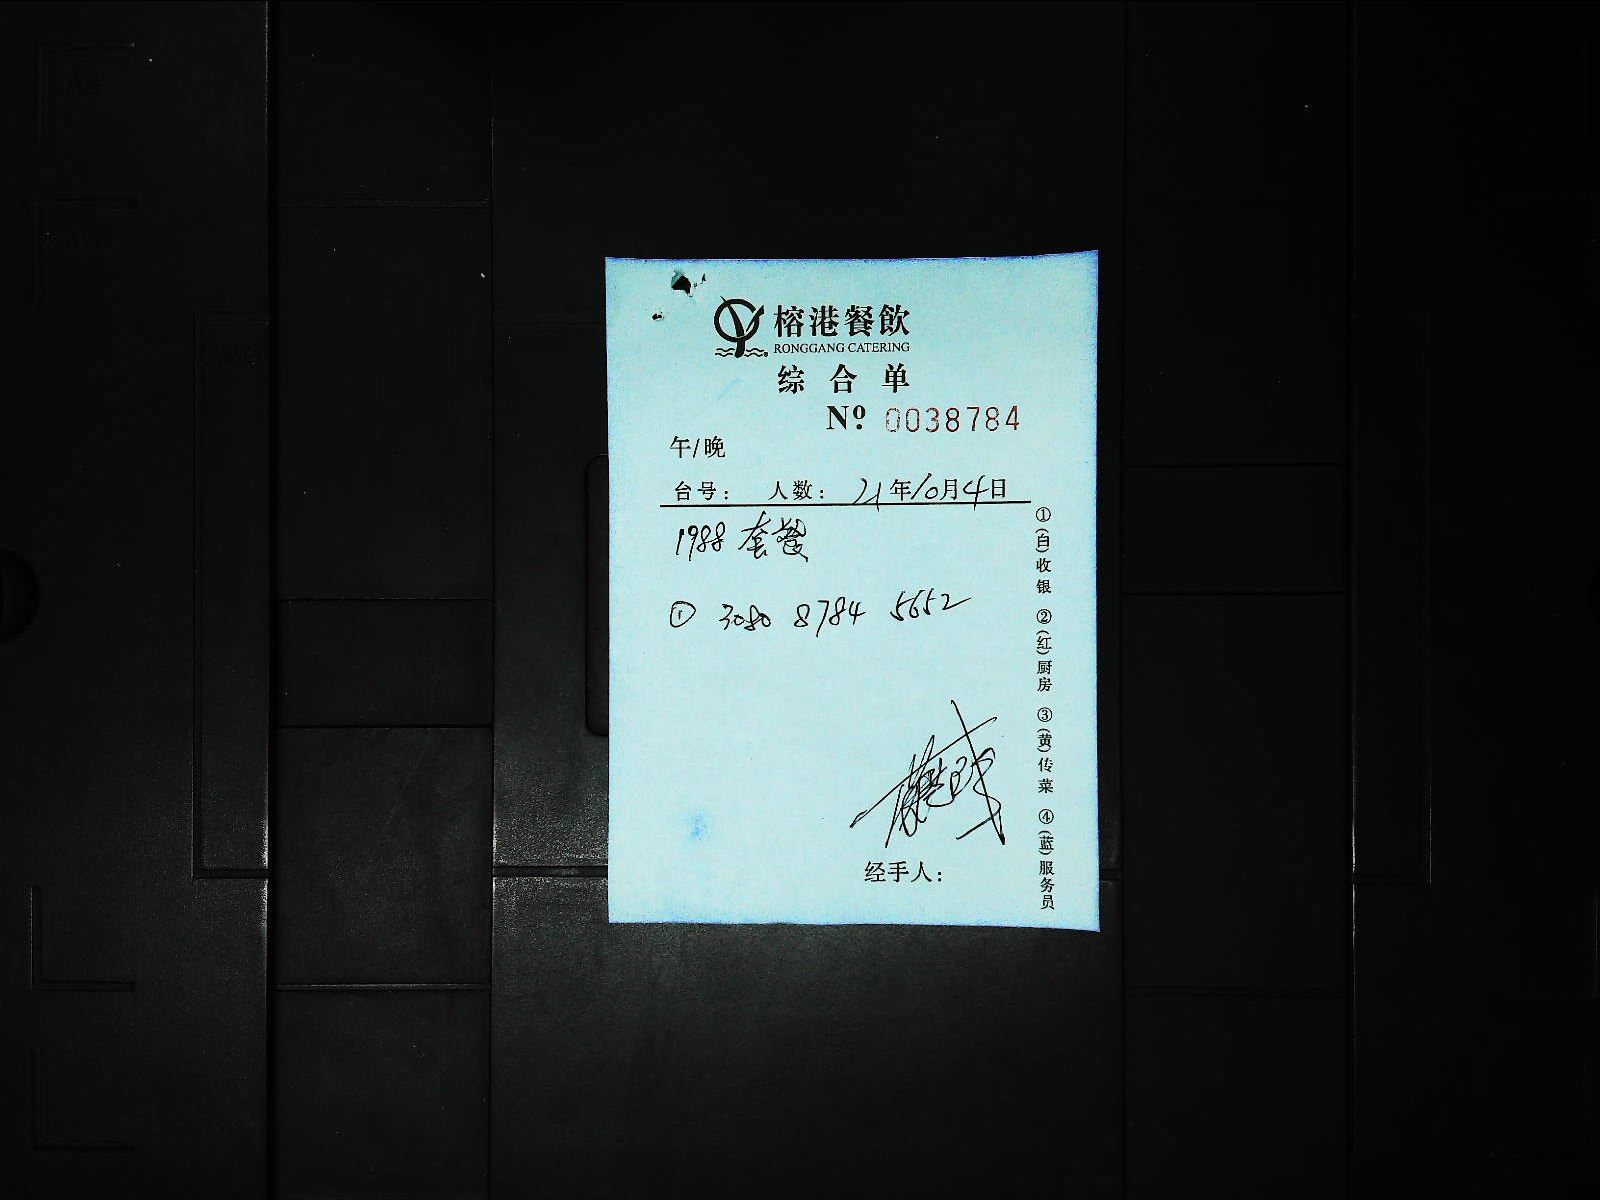 榕港餐飲
RONGGANG CATERING
综合单
Nº 0038784
午/晚
台号： 人数： 21年10月4日
1988 套餐
① 3080 8784 5652
经手人：
①(白)收银 ②(红)厨房 ③(黄)传菜 ④(蓝)服务员